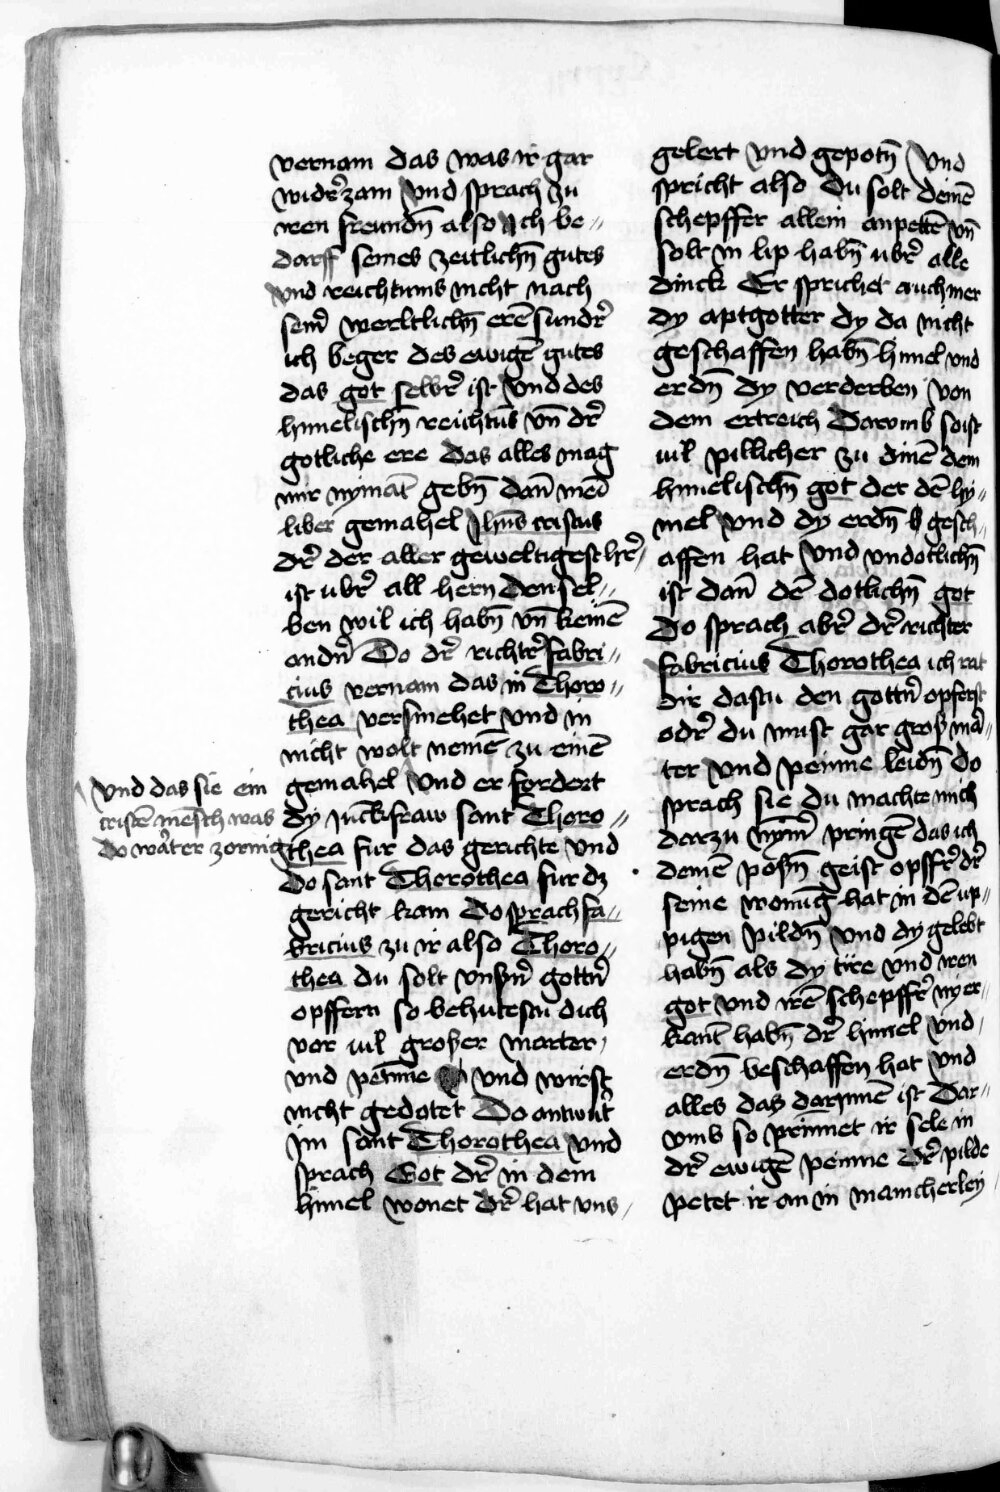 vernam das was ir gar
widr̄zam vnd sprach zu
iren freundn̄ also Ich be„
darff seines zeitlichn̄ gutes
vnd reichtums nicht nach
sein̄ werltlichn̄ ere͞ sundr̄
ich beger des ewige͞ gutes
das got selbr̄ ist vnd des
himelischn̄ reichtu͞s vn̄ dr̄
gotliche ere Das alles mag
mir nyma͞t gebn̄ dan̄ mei͞
liber gemahel Jhūs cristus
dr̄ der aller geweltigest hr̄„
ist ubr̄ all hern Den sel„
ben wil ich habn̄ vn̄ keine͞
andn̄ Do dr̄ richtr̄ fabri„
cius vernam das in Thoro„
thea versmehet vnd in
nicht wolt neme͞ zu eine͞
gemahel vnd er fordert
dy Ju͞ckfraw sant Thoro„
thea fur das gerichte vnd
Do sant Thorothea fur dz
gericht kam Do sprach fa„
bricius zu ir also Thoro„
thea du solt vnsn̄ gottn̄
opffern so behutestu dich
vor uil groser marter
vnd peinne vnd wirst
nicht gedotet Do antwut̄
Jm sant Thorothea vnd
sprach Got dr̄ in dem
himel wonet Dr̄ hat vns„
vnd das sie ein
criste͞ me͞sch was
Do wart̄ er zornig
gelert vnd gepotn̄ vnd
spricht also Du solt deine͞
schepffer allein anpette͞ vn̄
solt in lip habn̄ ubr̄ alle
dinck Er sprichet auch mer
dy aptgotter dy da nicht
geschaffen habn̄ himel vnd
erdn̄ dy verderben von
dem ertreich Darvmb so ist
uil pillicher zu dine͞ dem
himelischn̄ got der de͞ hy„
mel vnd dy erdn̄ gesch„
affen hat vnd vndotlichn̄
ist dan̄ de͞ dotlichn̄ got
Do sprach abr̄ dr̄ richter
fabricius Thorothea ich rat
dir dastu den gottn̄ opferst
odr̄ du must gar gros mar̄„
ter vnd peinne leidn̄ Do
sprach sie du machte mich
darzu nym̄ pringe͞ das ich
deine͞ posn̄ geist opffr̄ dr̄
seine wonu͞g hat in de͞ up„
pigen pildn̄ vnd dy gelebt
habn̄ als dy tire vnd iren
got vnd ire͞ schepffr̄ ny er„
kant habn̄ dr̄ himel vnd
erdn̄ beschaffen hat vnd
alles das darynne͞ ist Dar„
vmb so prinnet ir sele in
dr̄ ewige͞ peinne Dr̄ pilde
petet ir an in mancherley